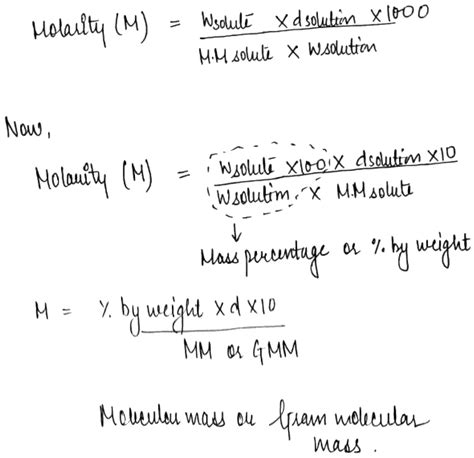 Molarity (M) = Wsolute X dsolution X1000
M.M solute X Wsolution
Now,
Molarity (M) = Wsolute X100 X dsolution X10
Wsolution X MM solute
Mass percentage or % by weight
M = % by weight X d X10
MM or GMM
Molecular mass or Gram molecular
mass.